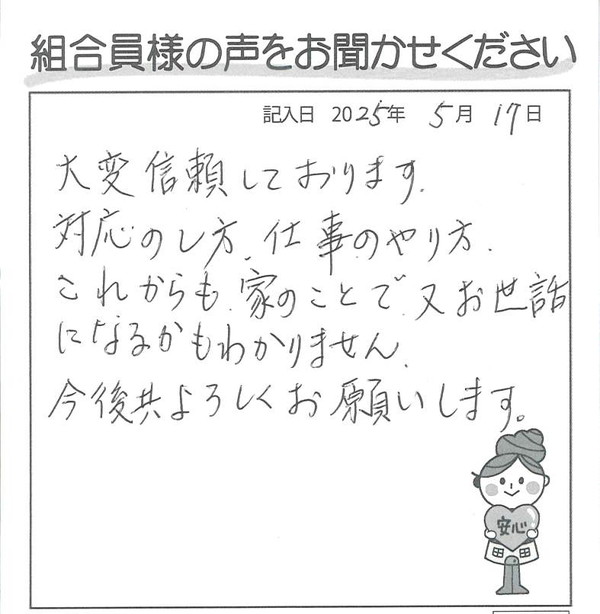 組合員様の声をお聞かせください
記入日 2025年 5月 17日
大変信頼しております.
対応のし方、仕事のやり方.
これからも、家のことで又お世話
になるかもわかりません.
今後共よろしくお願いします。
安心